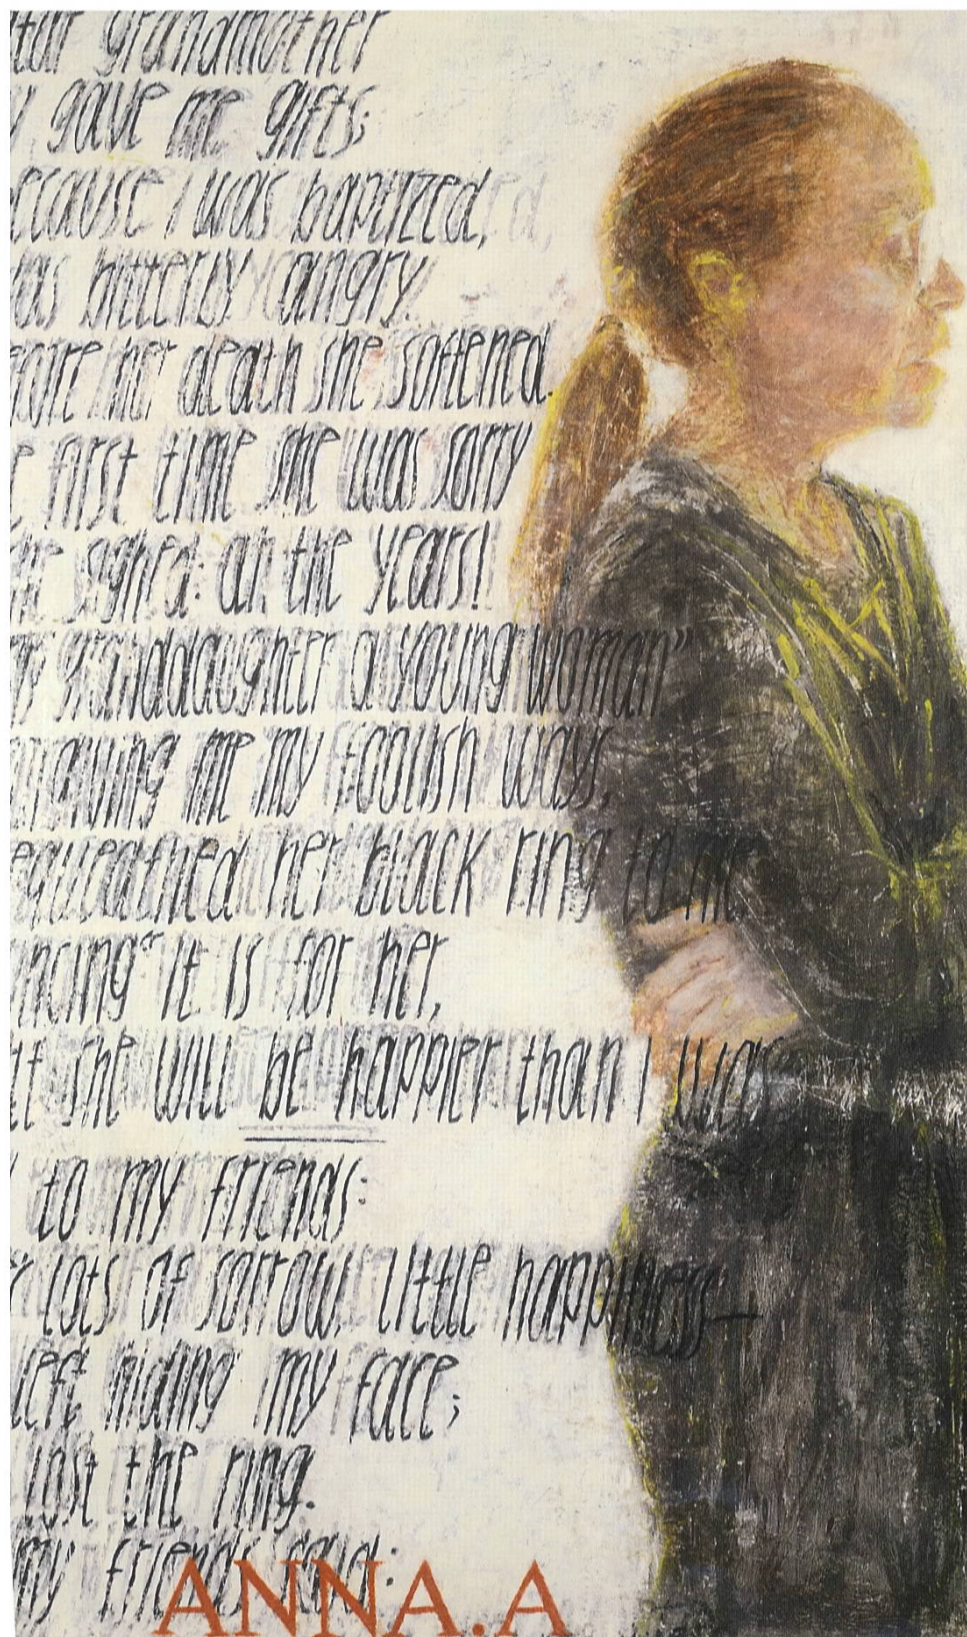 tar grandmother
y gave me gifts;
ecause I was baptized,
as bitterly angry.
efore her death she softened
e first time she was sorry
he sighed: ah the years!
my granddaughter a young woman"
orgiving me my foolish ways,
equeathed her black ring to me.
ncing" it is for her,
it she will be happier than I was
to my friends:
lots of sorrow, little happiness—
left hiding my face;
lost the ring.
my friends said:
ANNA.A